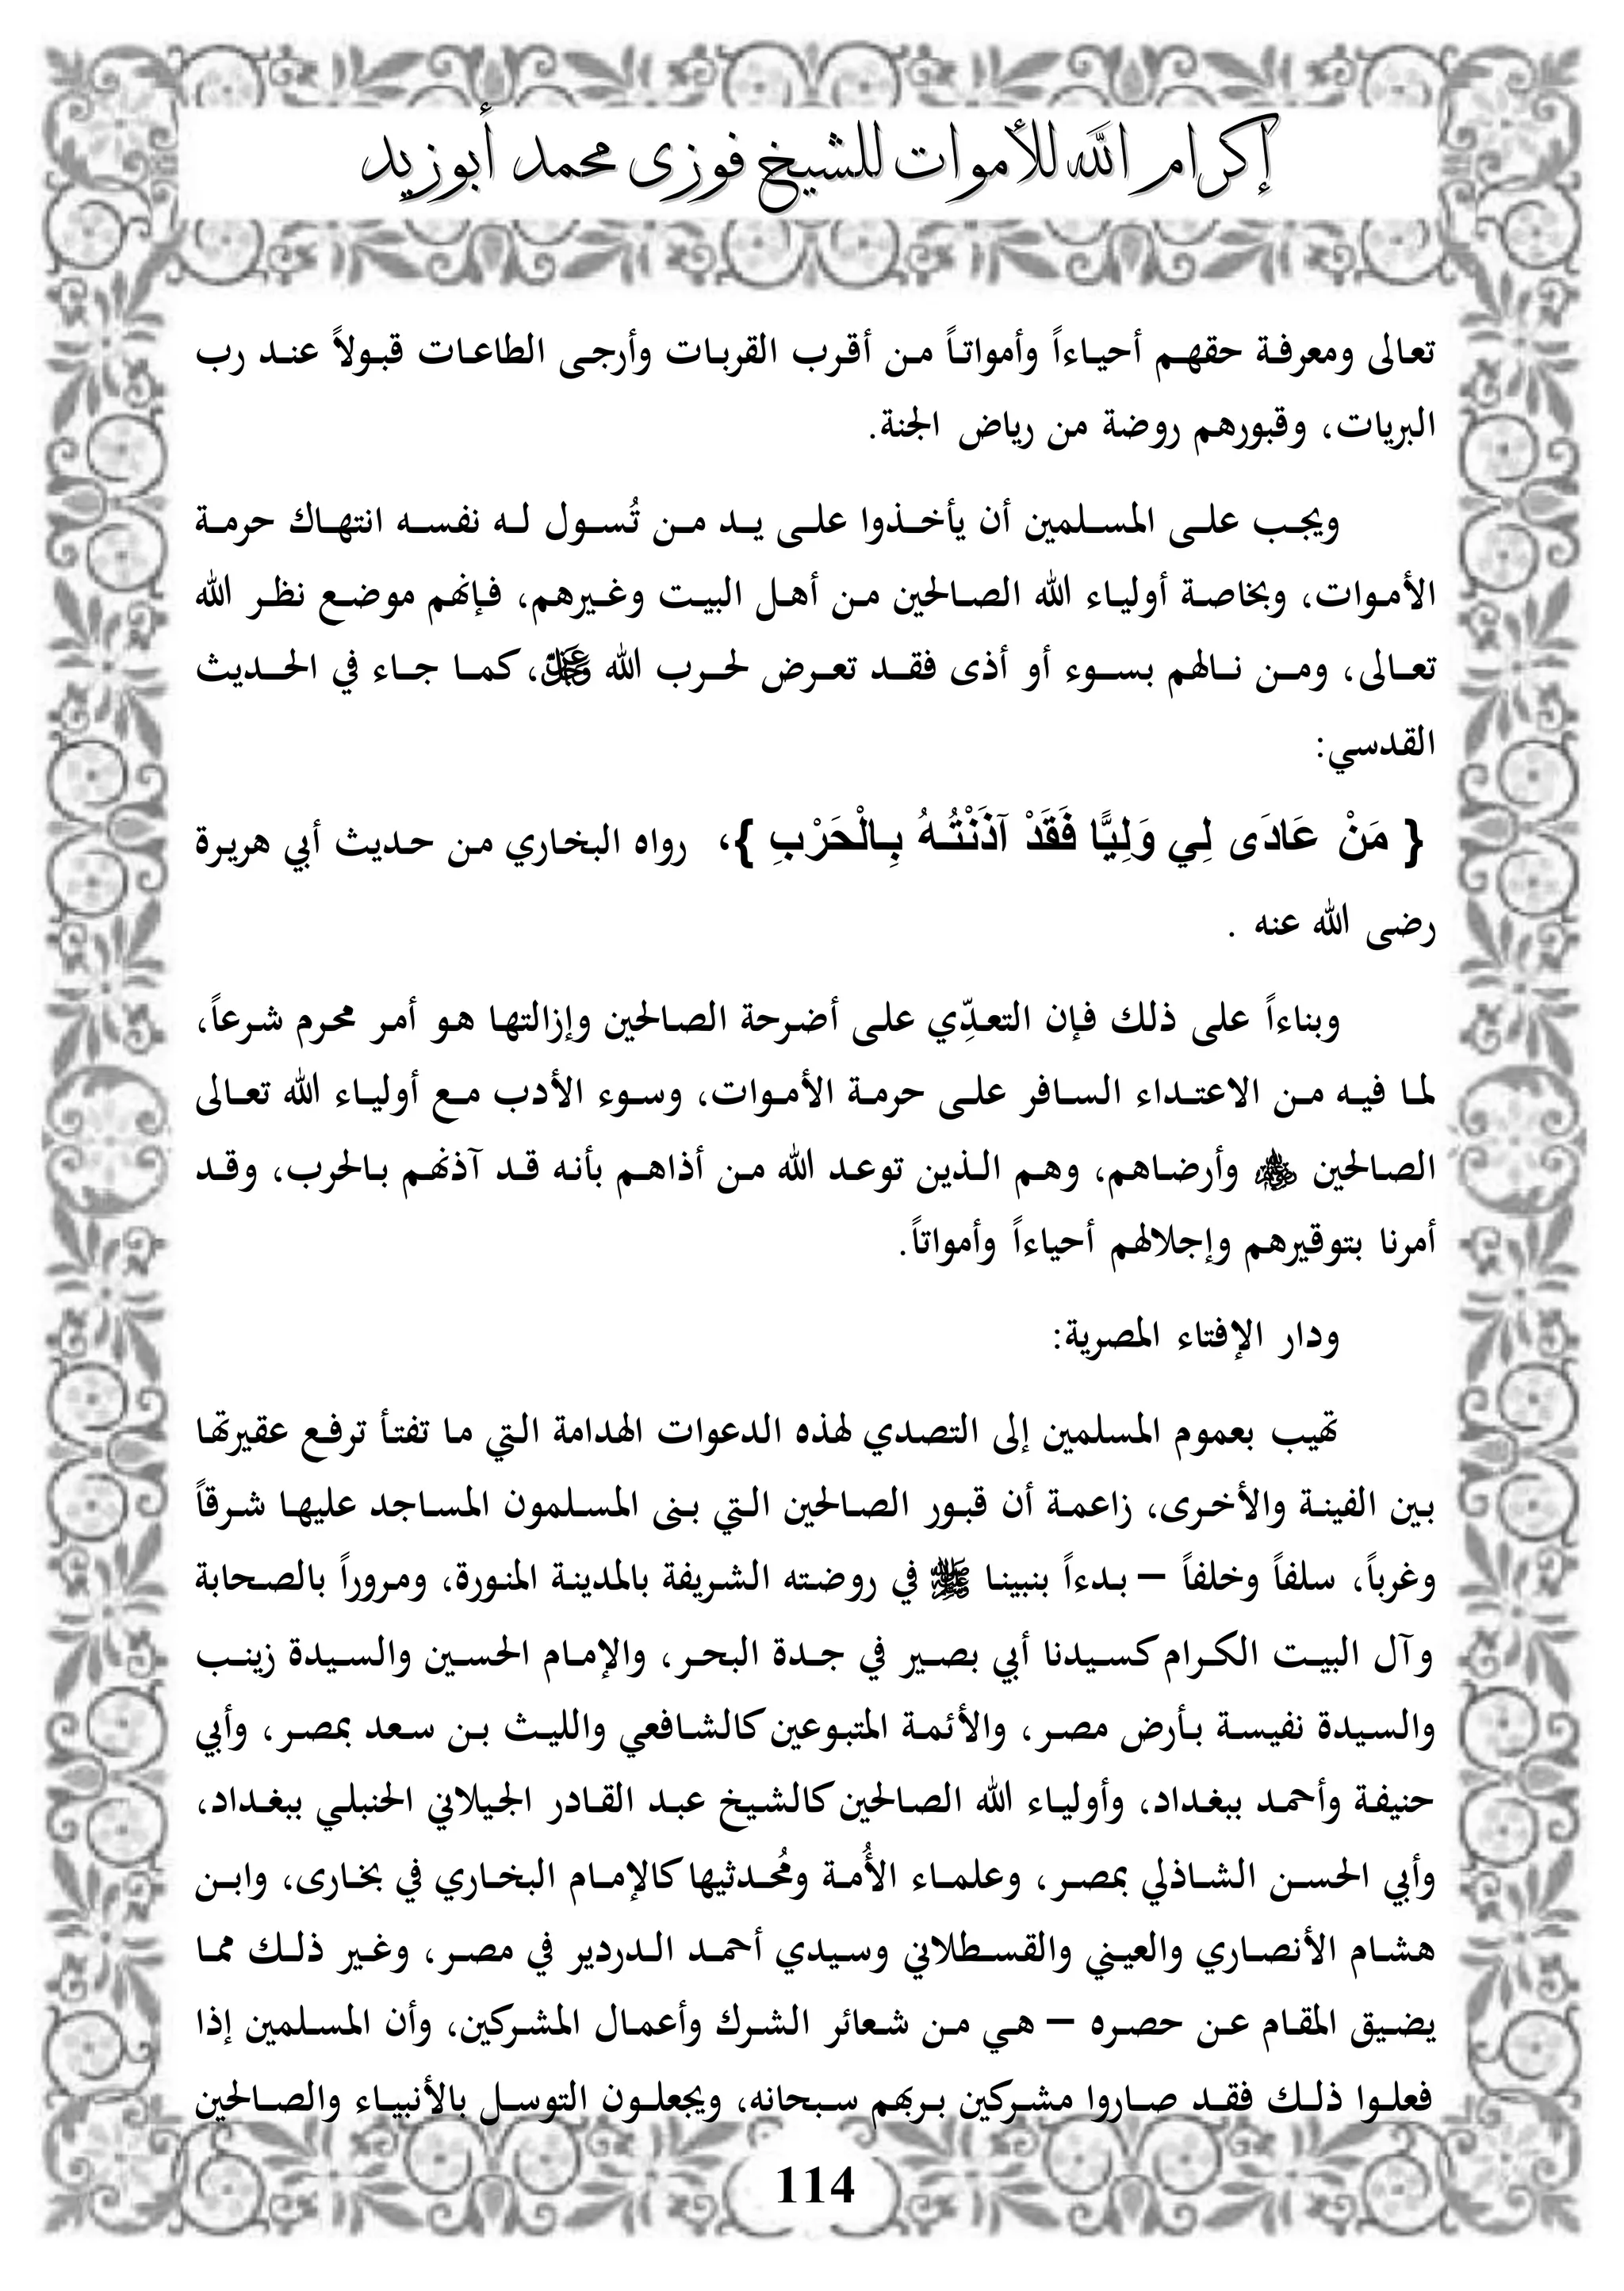 إكرام الله للأموات للشيخ فوزى محمد أبوزيد
تعالى ومعرفة حقهم أحياءاً وأمواتاً من أقرب القربات وأرجى الطاعات قبولاً عند رب
البريات، وقبورهم روضة من رياض الجنة.
ويجب على المسلمين أن يأخذوا على يد من تُسول له نفسه انتهاك حرمة
الأموات، وبخاصة أولياء الله الصالحين من أهل البيت وغيرهم، فإنهم موضع نظر الله
تعالى، ومن نالهم بسوء أو أذى فقد تعرض لحرب الله عز وجل، كما جاء في الحديث
القدسي:
{ مَنْ عَادَى لِي وَلِيًّا فَقَدْ آذَنْتُهُ بِالْحَرْبِ }، رواه البخاري من حديث أبي هريرة
رضى الله عنه .
وبناءاً على ذلك فإن التعدِّي على أضرحة الصالحين وإزالتها هو أمر محرم شرعاً،
لما فيه من الاعتداء السافر على حرمة الأموات، وسوء الأدب مع أولياء الله تعالى
الصالحين وأرضاهم، وهم الذين توعد الله من أذاهم بأنه قد آذنهم بالحرب، وقد
أمرنا بتوقيرهم وإجلالهم أحياءاً وأمواتاً.
ودار الإفتاء المصرية:
تهيب بعموم المسلمين إلى التصدي لهذه الدعوات الهدامة التي ما تفتأ ترفع عقيرتها
بين الفينة والأخرى، زاعمة أن قبور الصالحين التي بنى المسلمون المساجد عليها شرقاً
وغرباً، سلفاً وخلفاً – بدءاً بنبينا ﷺ في روضته الشريفة بالمدينة المنورة، ومروراً بالصحابة
وآل البيت الكرام كسيدنا أبي بصير في جدة البحر، والإمام الحسين والسيدة زينب
والسيدة نفيسة بأرض مصر، والأئمة المتبوعين كالشافعي والليث بن سعد بمصر، وأبي
حنيفة وأحمد ببغداد، وأولياء الله الصالحين كالشيخ عبد القادر الجيلاني الحنبلي ببغداد،
وأبي الحسن الشاذلي بمصر، وعلماء الأُمة ومُحدثيها كالإمام البخاري في بخارى، وابن
هشام الأنصاري والعيني والقسطلاني وسيدي أحمد الدردير في مصر، وغير ذلك مما
يضيق المقام عن حصره – هي من شعائر الشرك وأعمال المشركين، وأن المسلمين إذا
فعلوا ذلك فقد صاروا مشركين بربهم سبحانه، ويجعلون التوسل بالأنبياء والصالحين
114